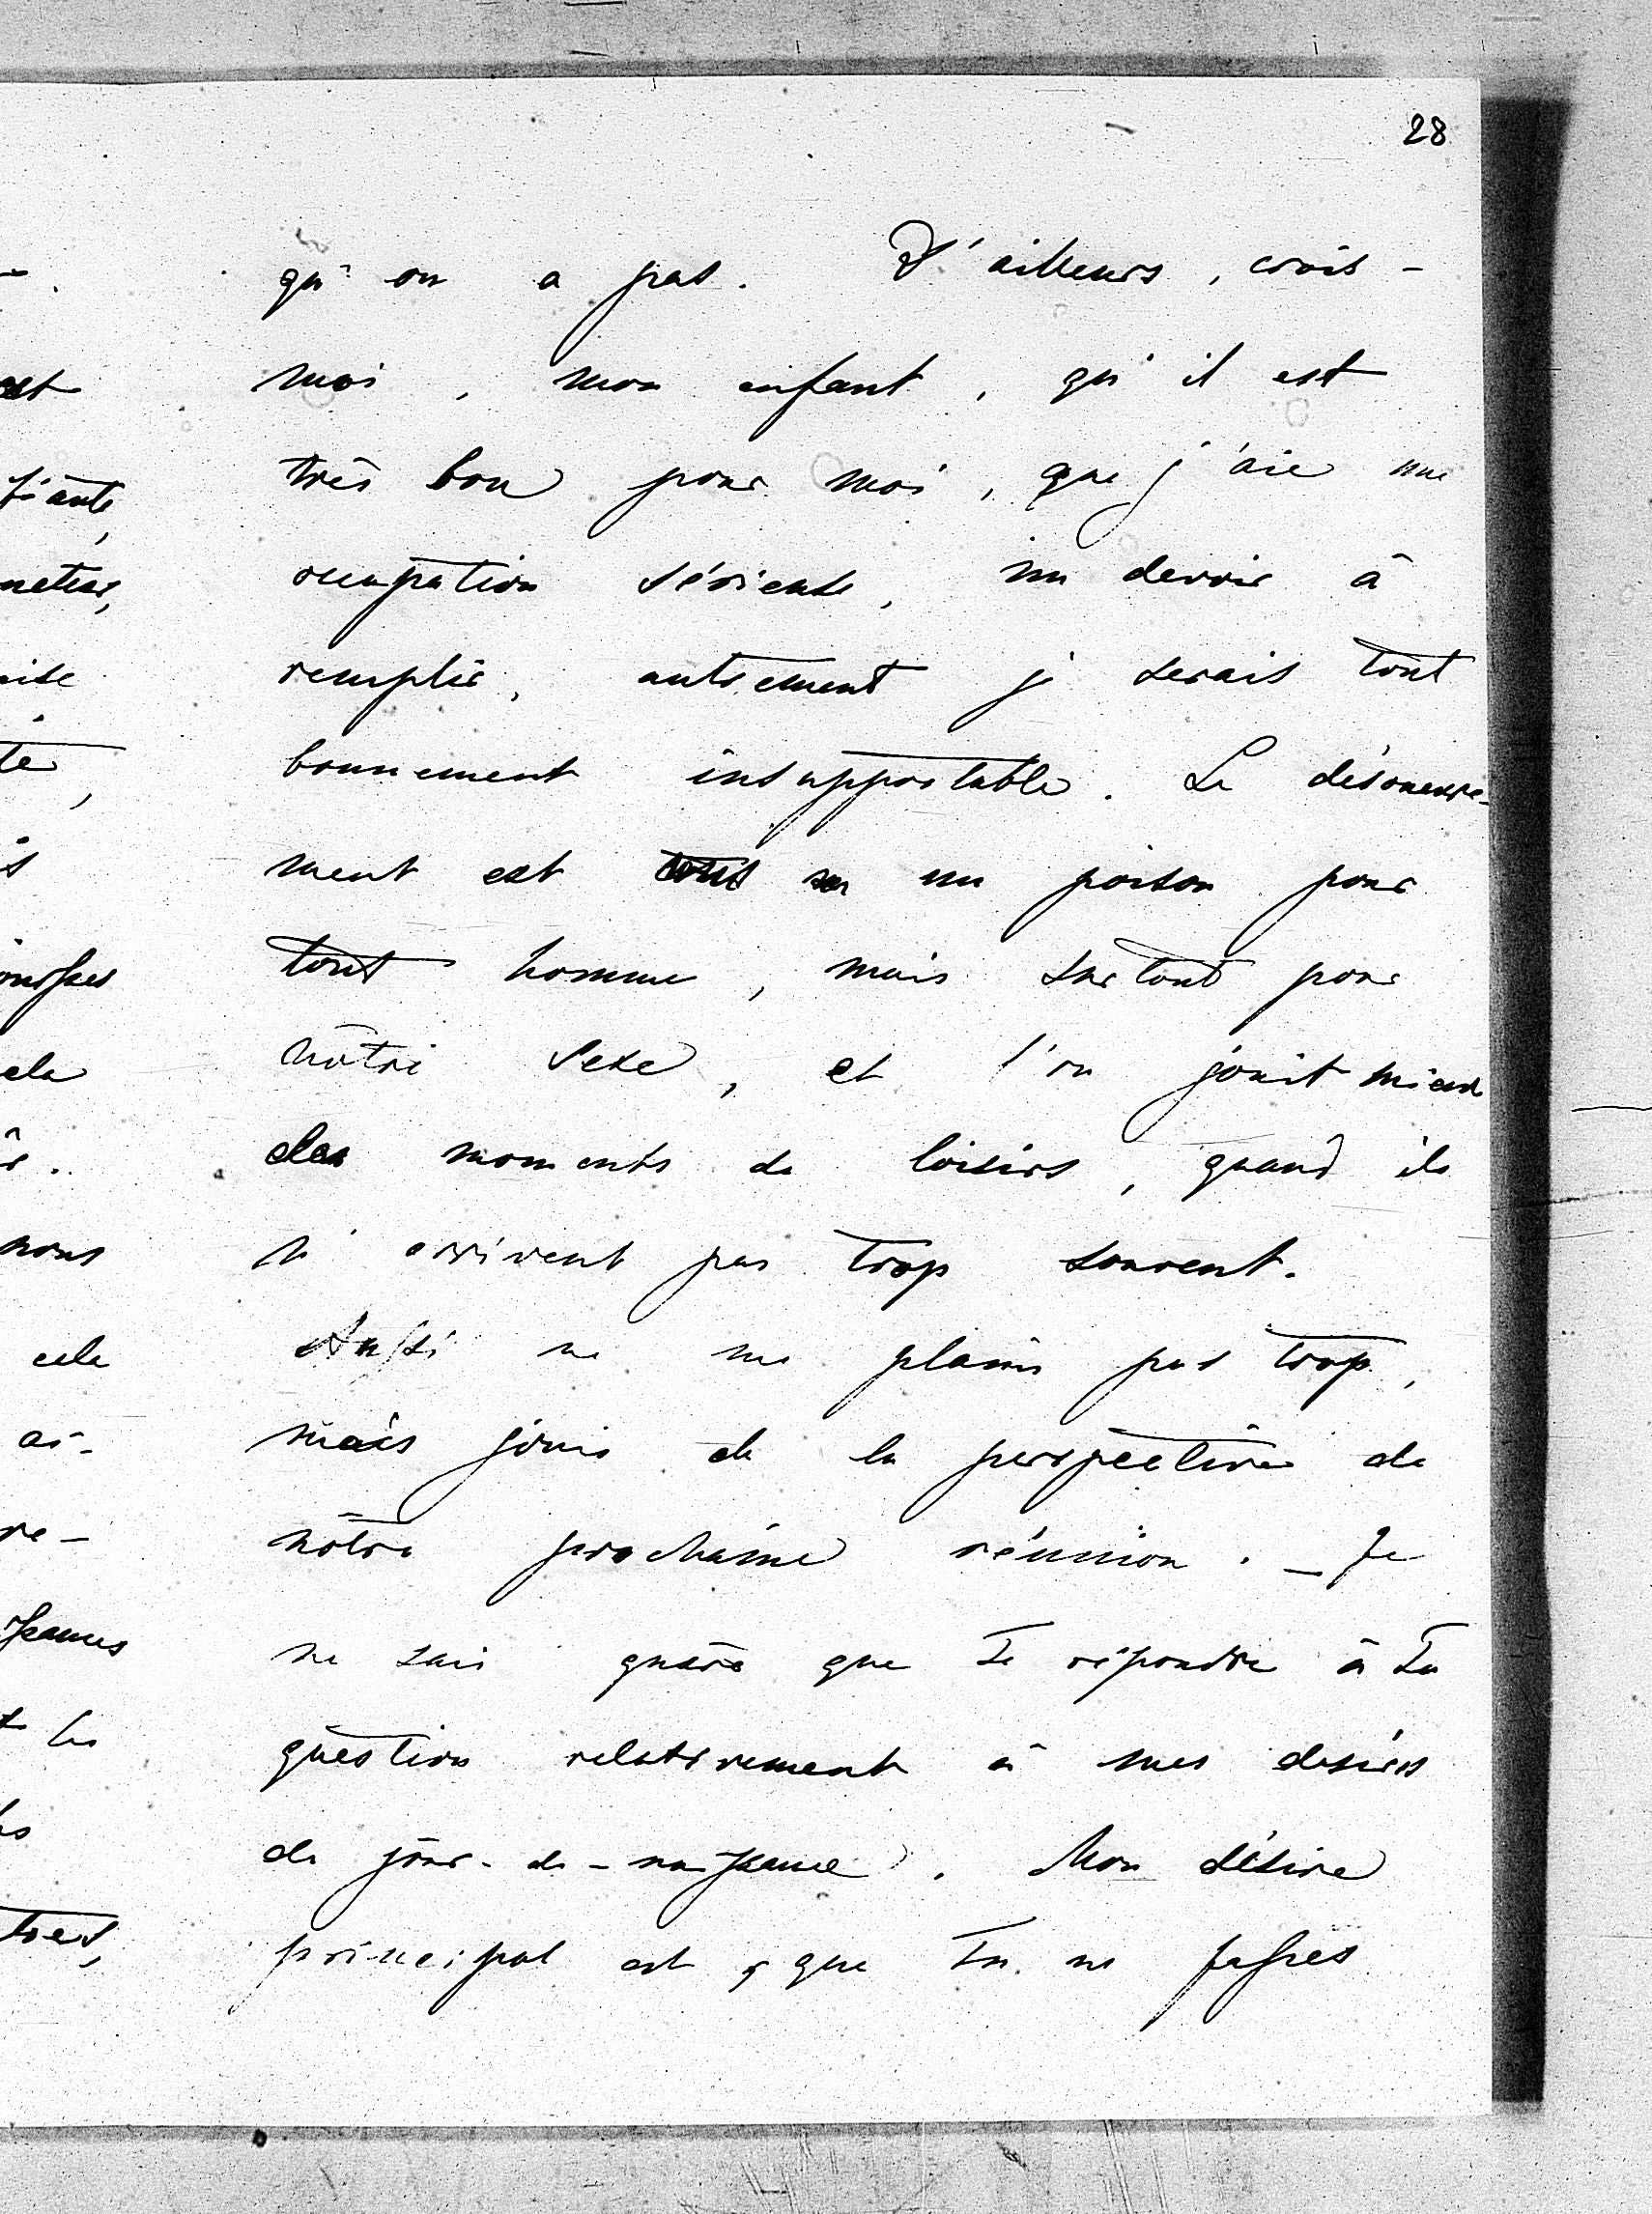 28
qu'on a pas. D'ailleurs, crois-
moi, mon enfant, qu'il est
très bon pour moi, que j'aie une
occupation sérieuse, un devoir à
remplir, autrement je serais tout
bonnement insupportable. Le désoeuvre-
ment est un poison pour
tout homme, mais surtout pour
nôtre sexe, et l'on jouit mieux
des moments de loisirs, quand ils
n'arrivent pas trop souvent.
Aussi ne me plains pas trop,
mais jouis de la perspective de
nôtre prochaine réunion. _ Je
ne sais guère que te répondre à ta
question relativement à mes désirs
de jour-de-naissance. Mon désire
principal est, que tu ne fasses